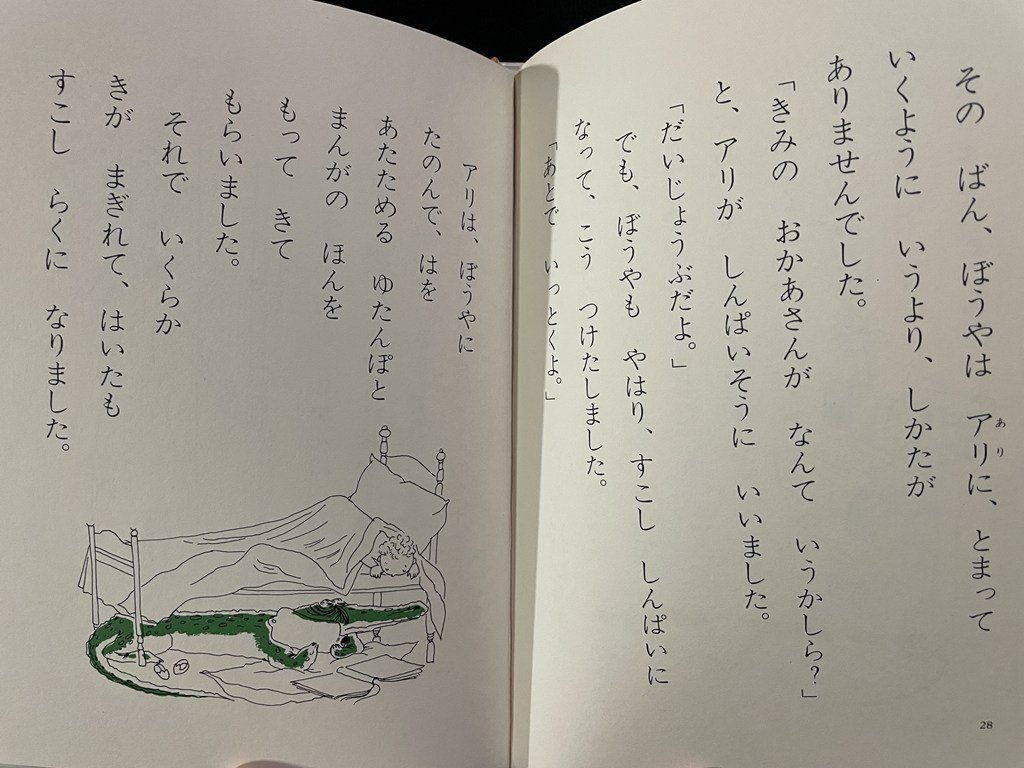 その　ばん、ぼうやは　アリに、とまって
あり
いくように　いうより、しかたが
ありませんでした。
「きみの　おかあさんが　なんて　いうかしら？」
と、アリが　しんぱいそうに　いいました。
「だいじょうぶだよ。」
でも、ぼうやも　やはり、すこし　しんぱいに
なって、こう　つけたしました。
「あとで　いっとくよ。」
28
アリは、ぼうやに
たのんで、はを
あたためる　ゆたんぽと
まんがの　ほんを
もって　きて
もらいました。
それで　いくらか
きが　まぎれて、はいたも
すこし　らくに　なりました。